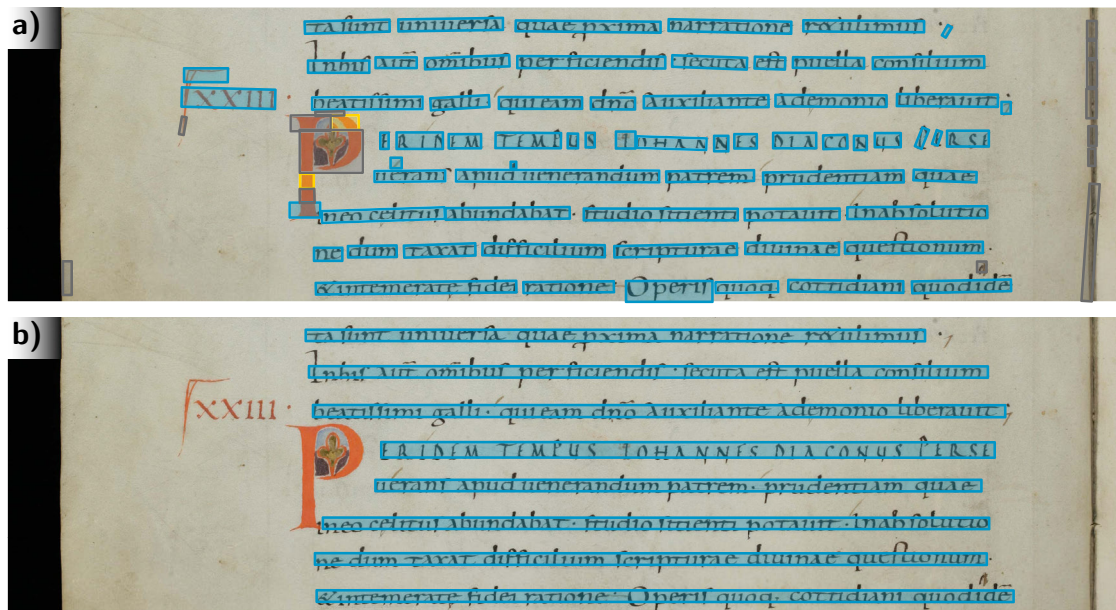 a)
ta sunt universa quae pxima narratione
In his aut̄ omībus perficiendis · secuta est puella consilium
LXXIII · beatissimi galli · qui eam dn̄o auxiliante a demonio liberavit ;
PER IDEM TEMPUS IOHANNES DIACONUS PERSE
apud venerandum patrem · prudentiam quae
in eo celitus abundabat · studio sitienti potavit · In absolutio
ne dum taxat difficilium scripturae divinae questionum ·
& intemerate fidei ratione · Operis quoq· cottidiani
b)
ta sunt universa quae pxima narratione
In his aut̄ omībus perficiendis · secuta est puella consilium
LXXIII · beatissimi galli · qui eam dn̄o auxiliante a demonio liberavit ;
PER IDEM TEMPUS IOHANNES DIACONUS PERSE
apud venerandum patrem · prudentiam quae
in eo celitus abundabat · studio sitienti potavit · In absolutio
ne dum taxat difficilium scripturae divinae questionum ·
& intemerate fidei ratione · Operis quoq· cottidiani